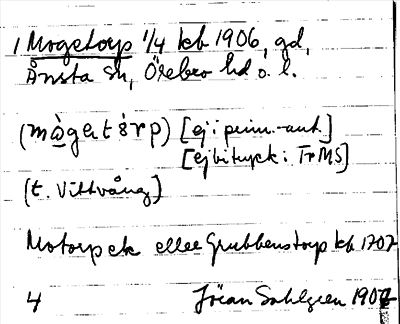 1 Mogetorp 1/4 kb 1906, gd,
Ånsta sn, Örebro hd o. l.
(mògetórp) [ej i prim.-ant.]
[ej bitryck: Tr MS]
(t. Vittvång)
Motorp ek eller Grubbenstorp kb 1707
4 Jöran Sahlgren 1907